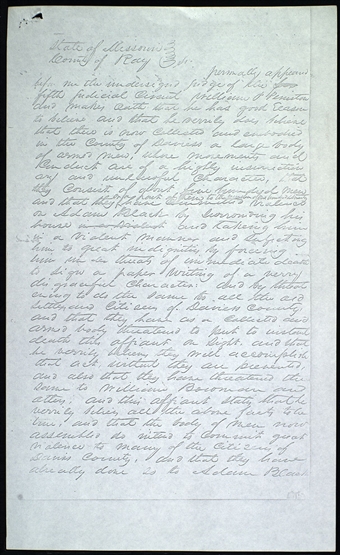 State of Missouri
County of Ray
personally appeared
before me the undersigned judge of the
fifth judicial Circuit William P Peniston
and makes oath that he has good reason
to believe and that he verily does believe
that there is now collected and embodied
in the County of Daviess a large body
of armed men, whose movements and
conduct are of a highly insurrection
ary and unlawful character, that
they consist of about five hundred men
and that
on Adam Black by surrounding his
house and taking him
in a violent manner and subjecting
him to great indignity by forcing
him under threats of immediate death
to sign a paper writing of a very
disgraceful character and by threat
ening to do the same to all the old
settlers and Citizens of Daviess County
and that they have as a collected and
armed body threatened to put to instant
death this affiant on sight and that
he verily believes they will accomplish
that act without they are prevented,
and also that they have threatened the
same to William Bowman and
others and this affiant states that he
verily believes all the above facts to be
true, and that the body of men now
assembled do intend to commit great
violence to many of the Citizens of
Daviess County, and that they have
already done so to Adam Black